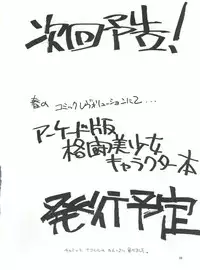 次回予告!
春の コミックレヴォリューションにて...
アーケード版
格闘美少女
キャラクター本
発行予定